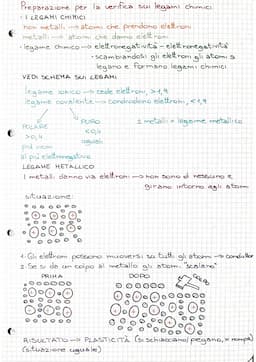 Preparazione per la verifica sui legami chimici
· I LEGAMI CHIMICI
non metalli → atomi che prendono elettroni
metalli → atomi che danno elettroni
· legame chimico → elettronegatività - elettronegatività
→ scambiandosi gli elettroni gli atomi si
legano e formano legami chimici
VEDI SCHEMA SUI LEGAMI
legame ionico → cede elettroni, >1,9
legame covalente → condividono elettroni, <1,9
POLARE
>0,4
più vicini
al più elettronegativo
PURO
<0,4
uguali
2 metalli = legame metallico
LEGAME METALLICO
I metalli danno via elettroni → non sono di nessuno e
girano intorno agli atomi
situazione:
1. Gli elettroni possono muoversi su tutti gli atomi → conduttori
2. Se si dà un colpo al metallo gli atomi "scalano"
PRIMA
DOPO
COLPO
RISULTATO → PLASTICITÀ (si schiacciano/piegano, x rompe)
(situazione uguale)
1